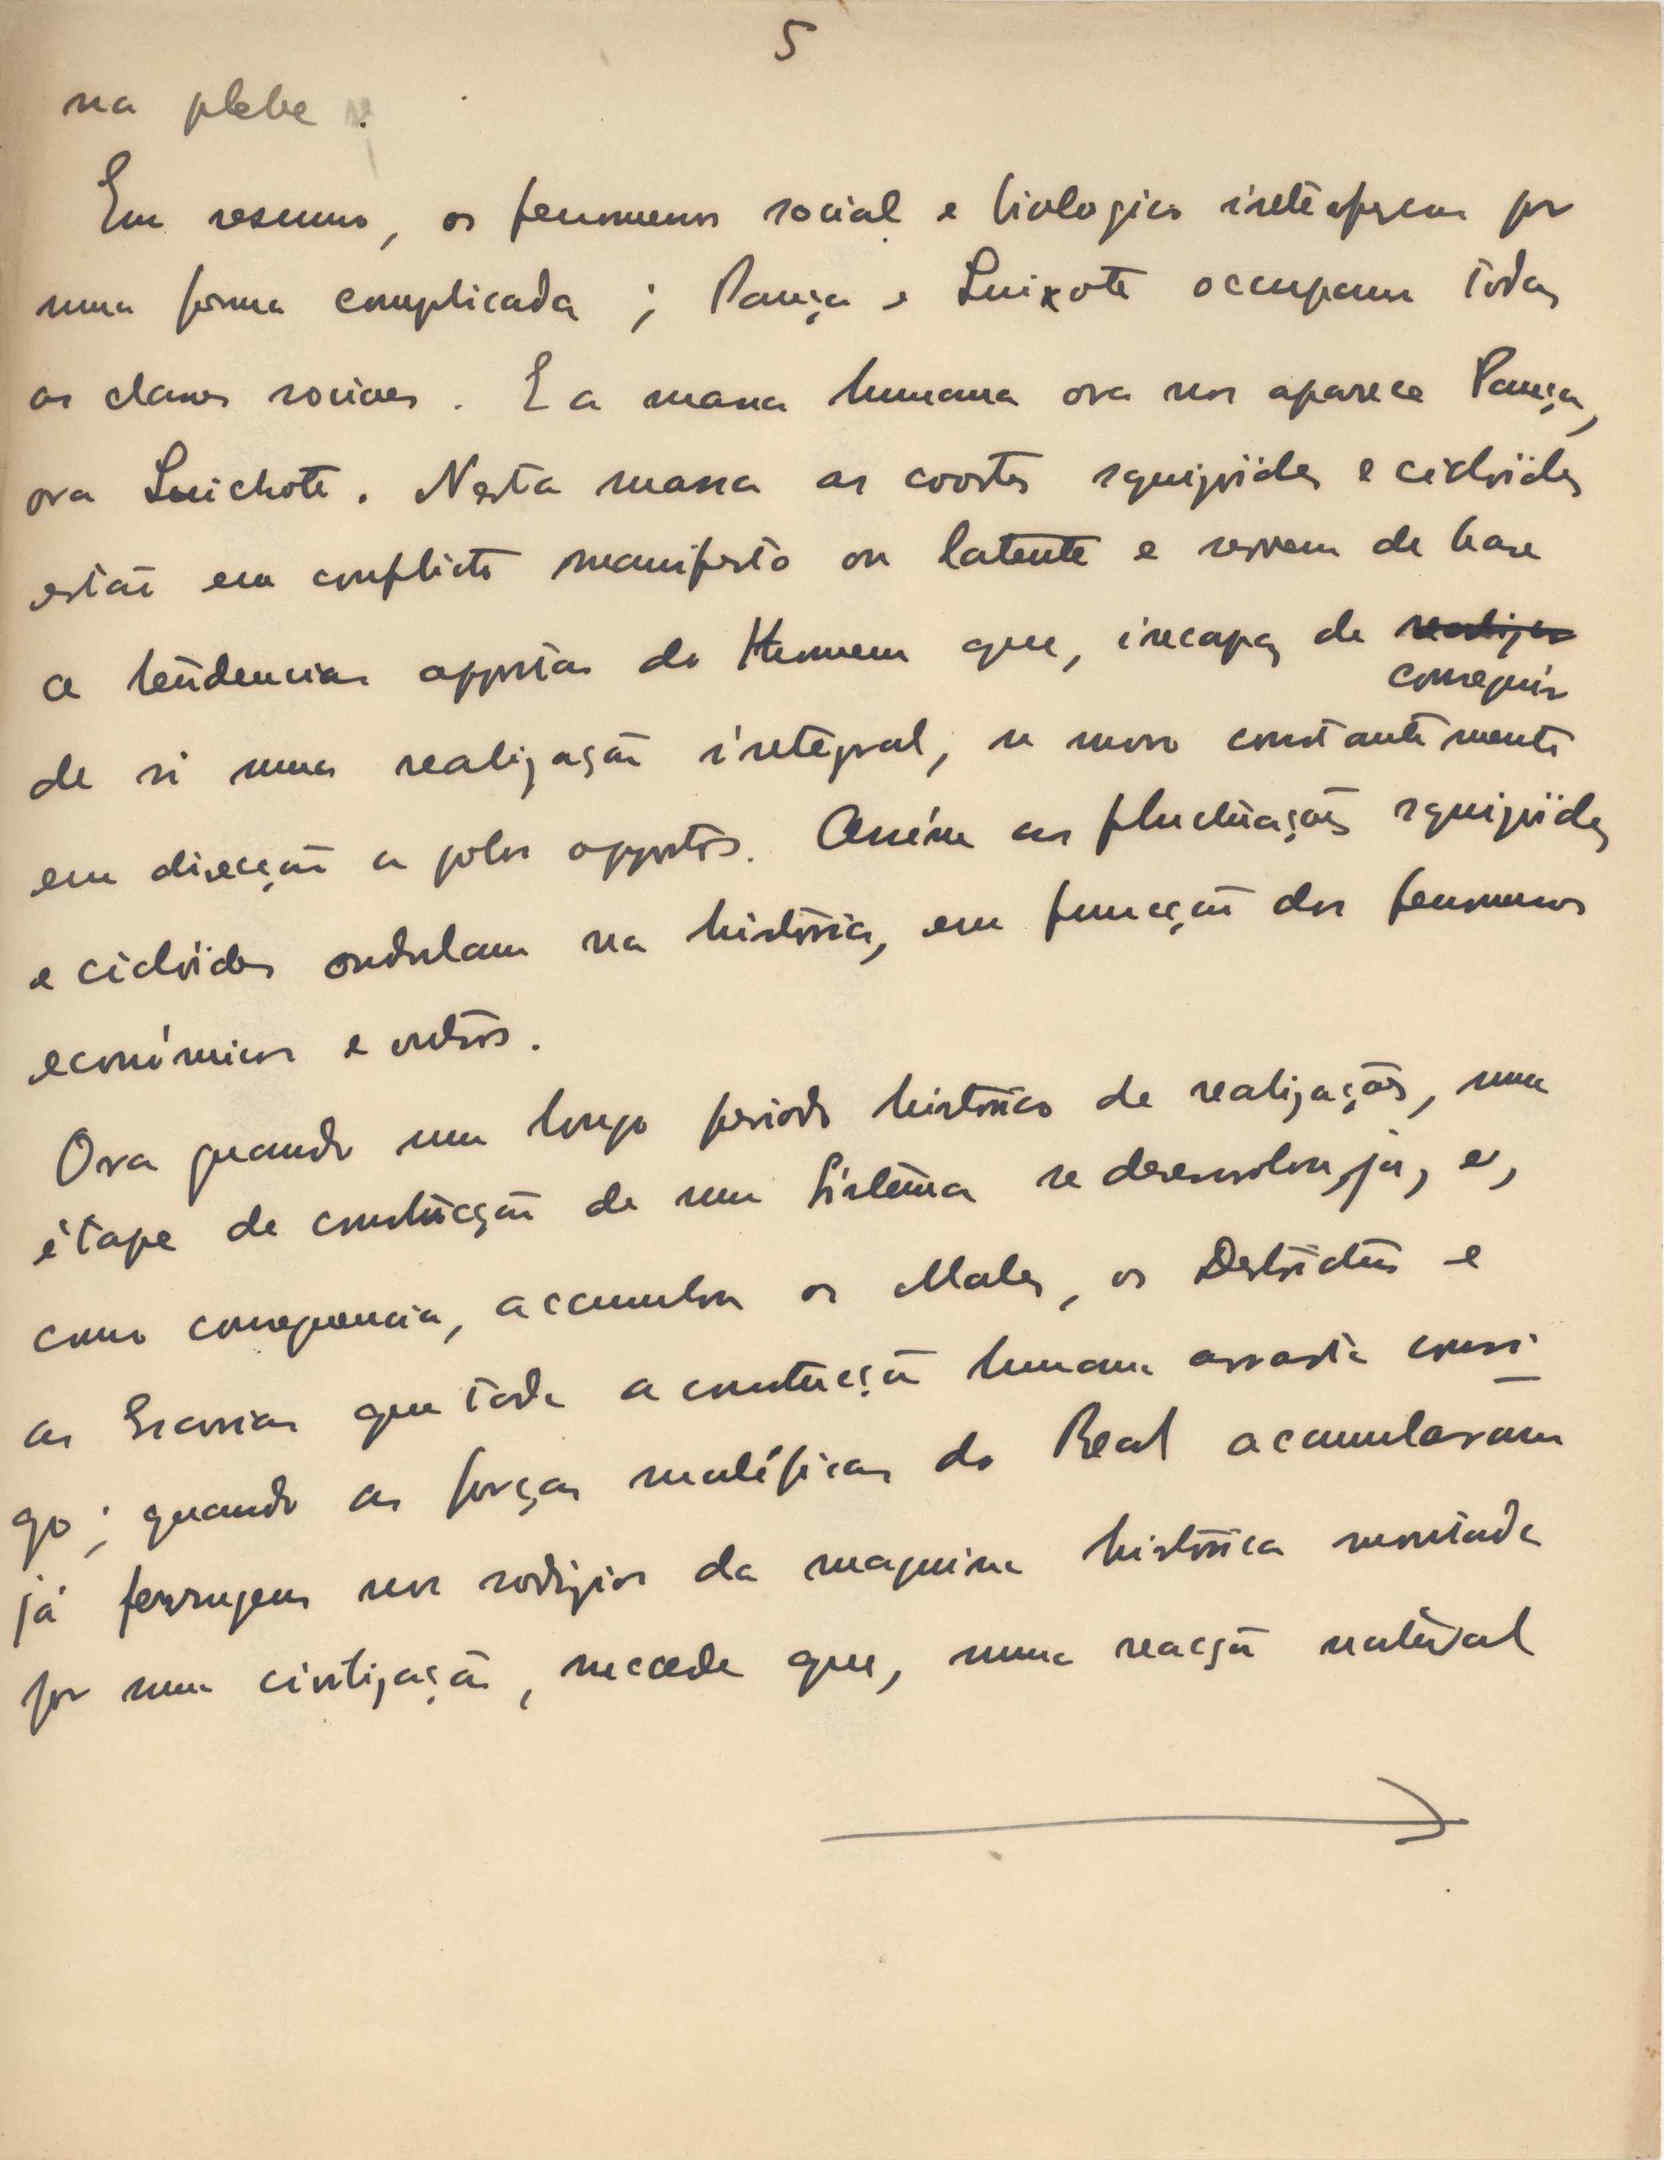 5
na plebe.
Em resumo, os fenomenos social e biologico interferem por
uma forma complicada; Pança e Quixote occupam todas
as classes sociaes. E a massa humana ora nos aparece Pança,
ora Quichote. Nesta massa as coortes squizóides e ciclóides
estão em conflicto manifesto ou latente e servem de base
a tendencias oppostas do Homem que, incapaz de realizar
conseguir
de si uma realização integral, se move constantemente
em direcção a polos oppostos. Assim as fluctuações squizóides
e ciclóides ondulam na história, em funcção dos fenomenos
económicos e outros.
Ora quando um longo periodo histórico de realizações, uma
étape de construcção de um Sistema se desenvolveu já, e,
como consequencia, accumulou os Males, os Destrictus e
as Escorias que toda a construcção humana arrasta consi
go; quando as forças maléficas do Real acumularam
já ferrugem nos rodizios da maquina histórica montada
por uma civilização, succede que, numa reacção natural